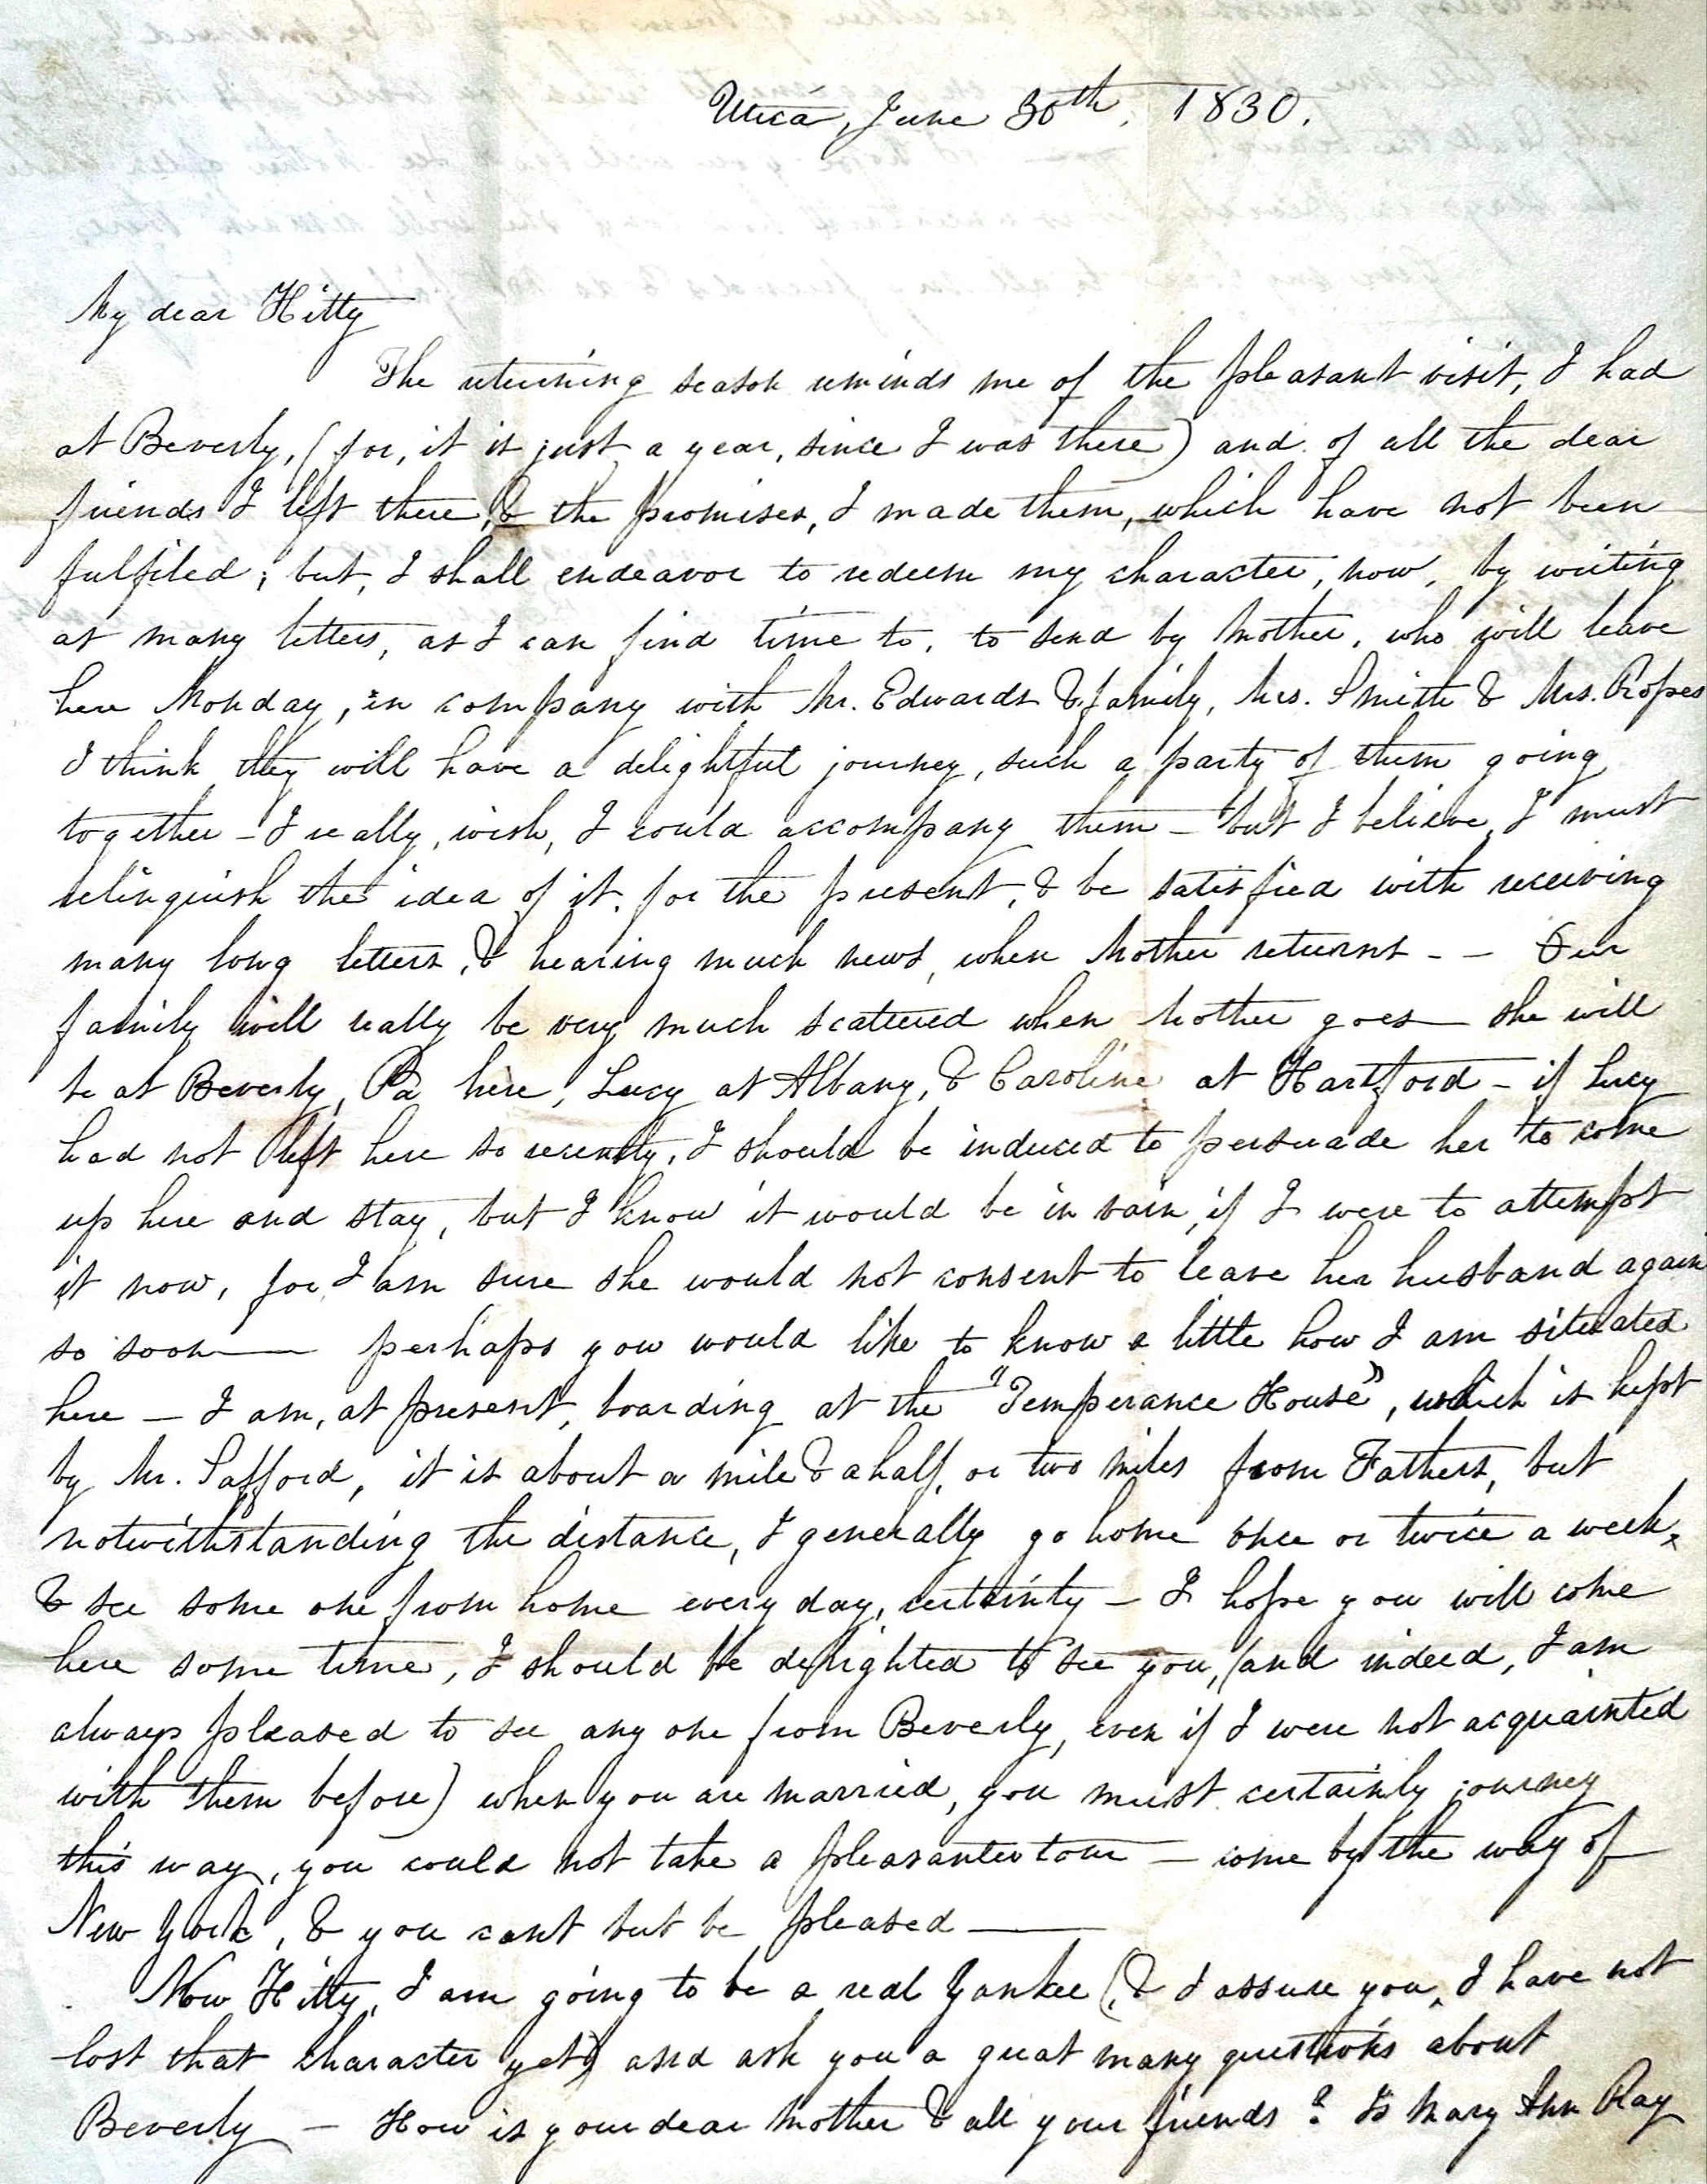 Utica, June 30th, 1830.
My dear Hitty
The returning season reminds me of the pleasant visit, I had
at Beverly, (for, it is just a year, since I was there) and of all the dear
friends I left there, & the promises, I made them, which have not been
fulfiled; but, I shall endeavor to redeem my character, now, by writing
as many letters, as I can find time to, to send by Mother, who will leave
here Monday, in company with Mr. Edwards & family, Mrs. Smith & Mrs. Ropes
I think they will have a delightful journey, such a party of them going
together - I really, wish, I could accompany them - but I believe, I must
relinquish the idea of it, for the present, & be satisfied with receiving
many long letters, & hearing much news, when Mother returns - - Our
family will really be very much scattered when Mother goes - she will
be at Beverly, Pa here, Lucy at Albany, & Caroline at Hartford - if Lucy
had not left here so recently, I should be induced to persuade her to come
up here and stay, but I know it would be in vain, if I were to attempt
it now, for I am sure she would not consent to leave her husband again
so soon — perhaps you would like to know a little how I am situated
here — I am, at present, boarding at the "Temperance House", which is kept
by Mr. Safford, it is about a mile & a half, or two miles from Fathers, but
notwithstanding the distance, I generally go home once or twice a week,
& see some one from home every day, certainty - I hope you will come
here some time, I should be delighted to see you, (and indeed, I am
always pleased to see any one from Beverly, even if I were not acquainted
with them before) when you are married, you must certainly journey
this way, you could not take a pleasanter tour — come by the way of
New York, & you cant but be pleased ———
Now Hitty, I am going to be a real Yankee (& I assure you, I have not
lost that character yet) and ask you a great many questions about
Beverly — How is your dear Mother & all your friends? Is Mary Ann Ray